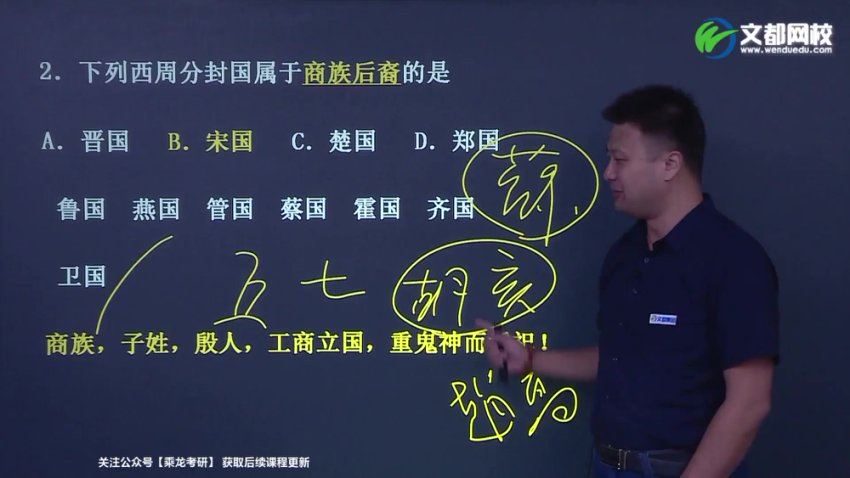 文都网校
www.wenduedu.com
2．下列西周分封国属于商族后裔的是
A．晋国 B．宋国 C．楚国 D．郑国
鲁国 燕国 管国 蔡国 霍国 齐国
卫国
五 七 胡亥
商族，子姓，殷人，工商立国，重鬼神而 祀！
关注公众号【乘龙考研】 获取后续课程更新